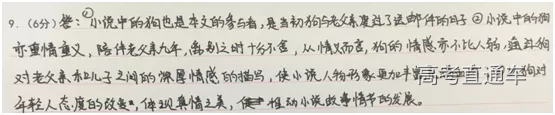 9.(6分)答:①小说中的狗也是本文的参与者,是当初狗与老父亲度过了送邮件的日子②小说中的狗
亦重情重义,陪伴老父亲九年,离别之时十分不舍,从情义而言,狗的情感亦不比人弱,通过狗
对老父亲和儿子之间的深厚情感的描写,使小说人物形象更加丰 狗对
年轻人态度的改变,体现真情之美,推动小说故事情节的发展。
高考直通车